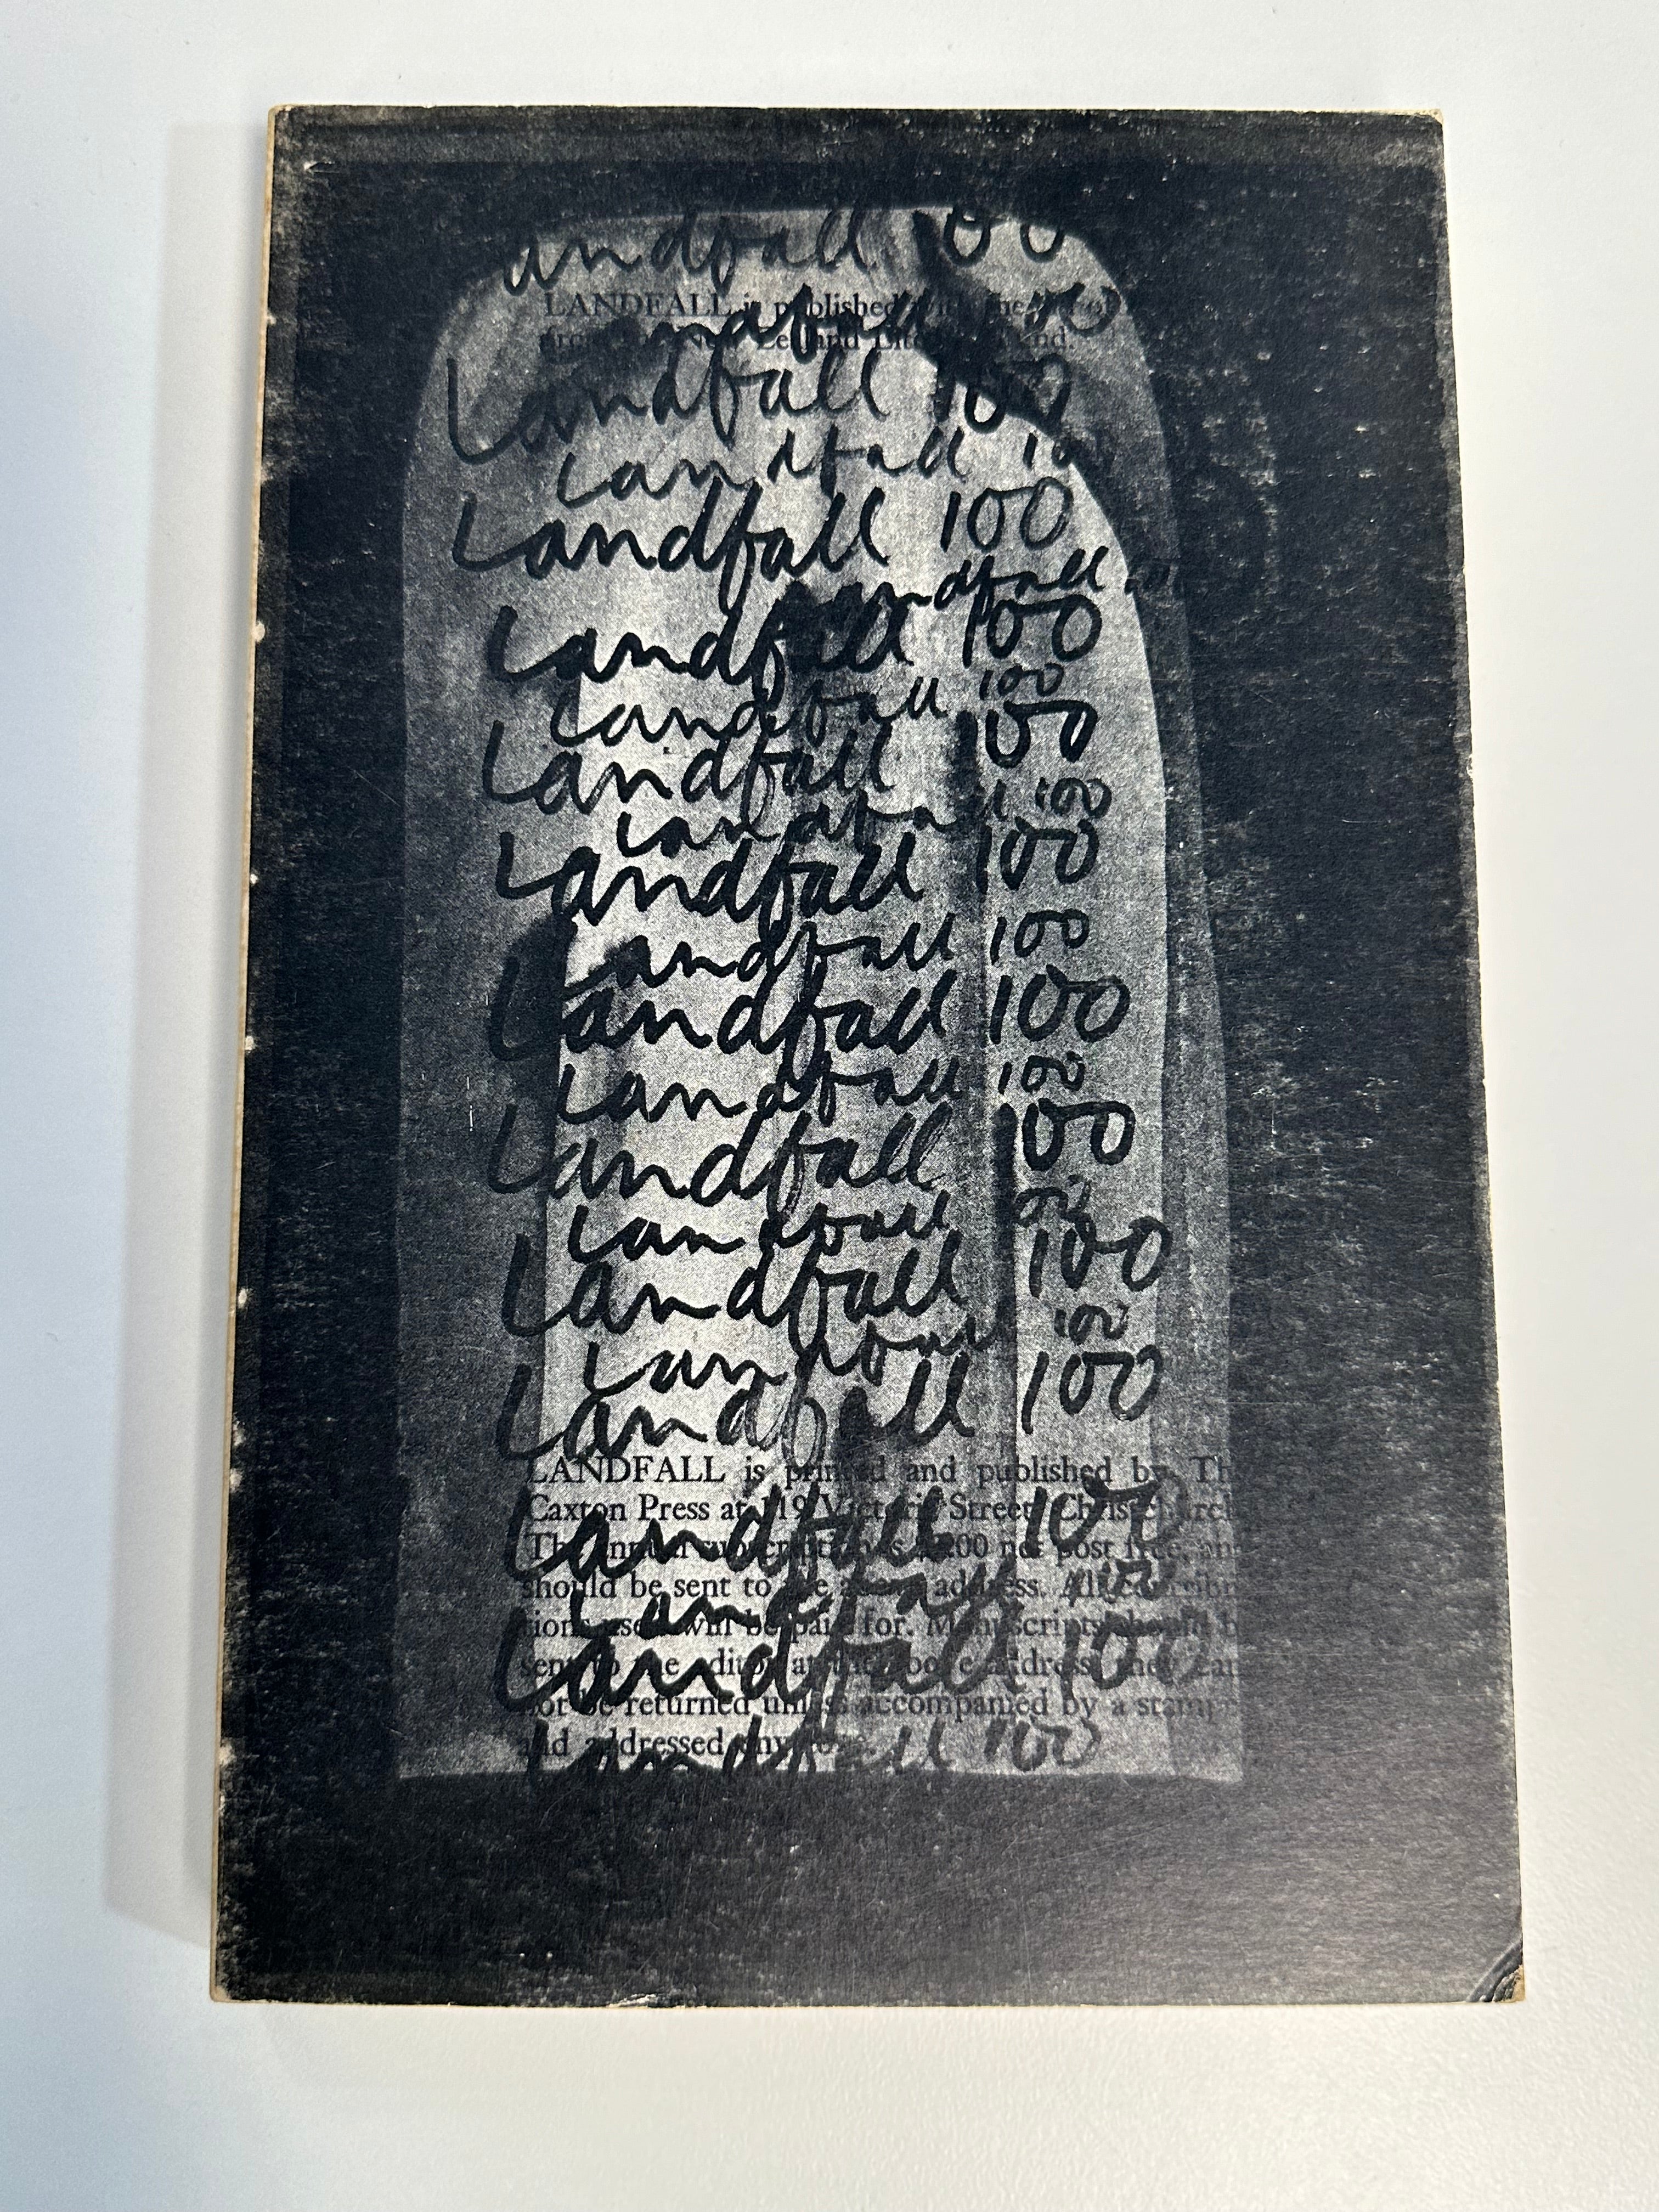 andfall 100
LANDFALL is published
Landfall 100
Landfall 100
Landfall 10
Landfall 100
andfall 100
Landfall 100
Landfall 100
Landfall 100
Landfall 100
Landfall 100
Landfall 100
Landfall 100
Landfall 100
Landfall 100
Landfall 100
Landfall 100
Landfall 100
Landfall 100
LANDFALL is printed and published by Th
Caxton Press at 119 Victoria Street, Christchurch
Landfall 100
The annual subscription is net post free, an
should be sent to the above address. All contribu
Landfall 100
tions used will be paid for. Manuscripts should b
Landfall 100
sent to the editor at the above address. They can
not be returned unless accompanied by a stamp
and addressed
Landfall 100